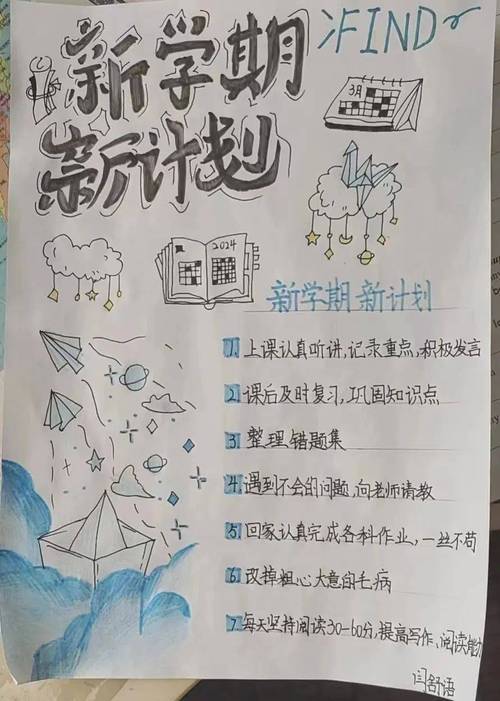 新学期
新计划
FIND
3月
2024
新学期 新计划
1. 上课认真听讲,记录重点,积极发言
2. 课后及时复习,巩固知识点
3. 整理错题集
4. 遇到不会的问题,向老师请教
5. 回家认真完成各科作业,一丝不苟
6. 改掉粗心大意的毛病
7. 每天坚持阅读30-60分,提高写作、阅读能力
闫舒语